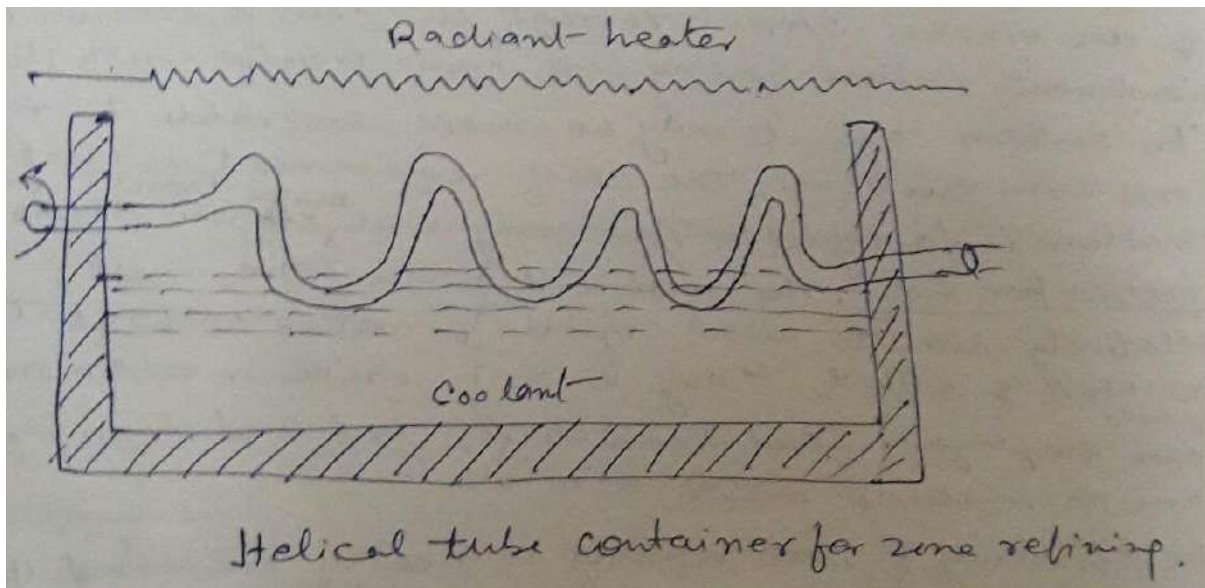 Radiant heater
Coolant
Helical tube container for zone refining.